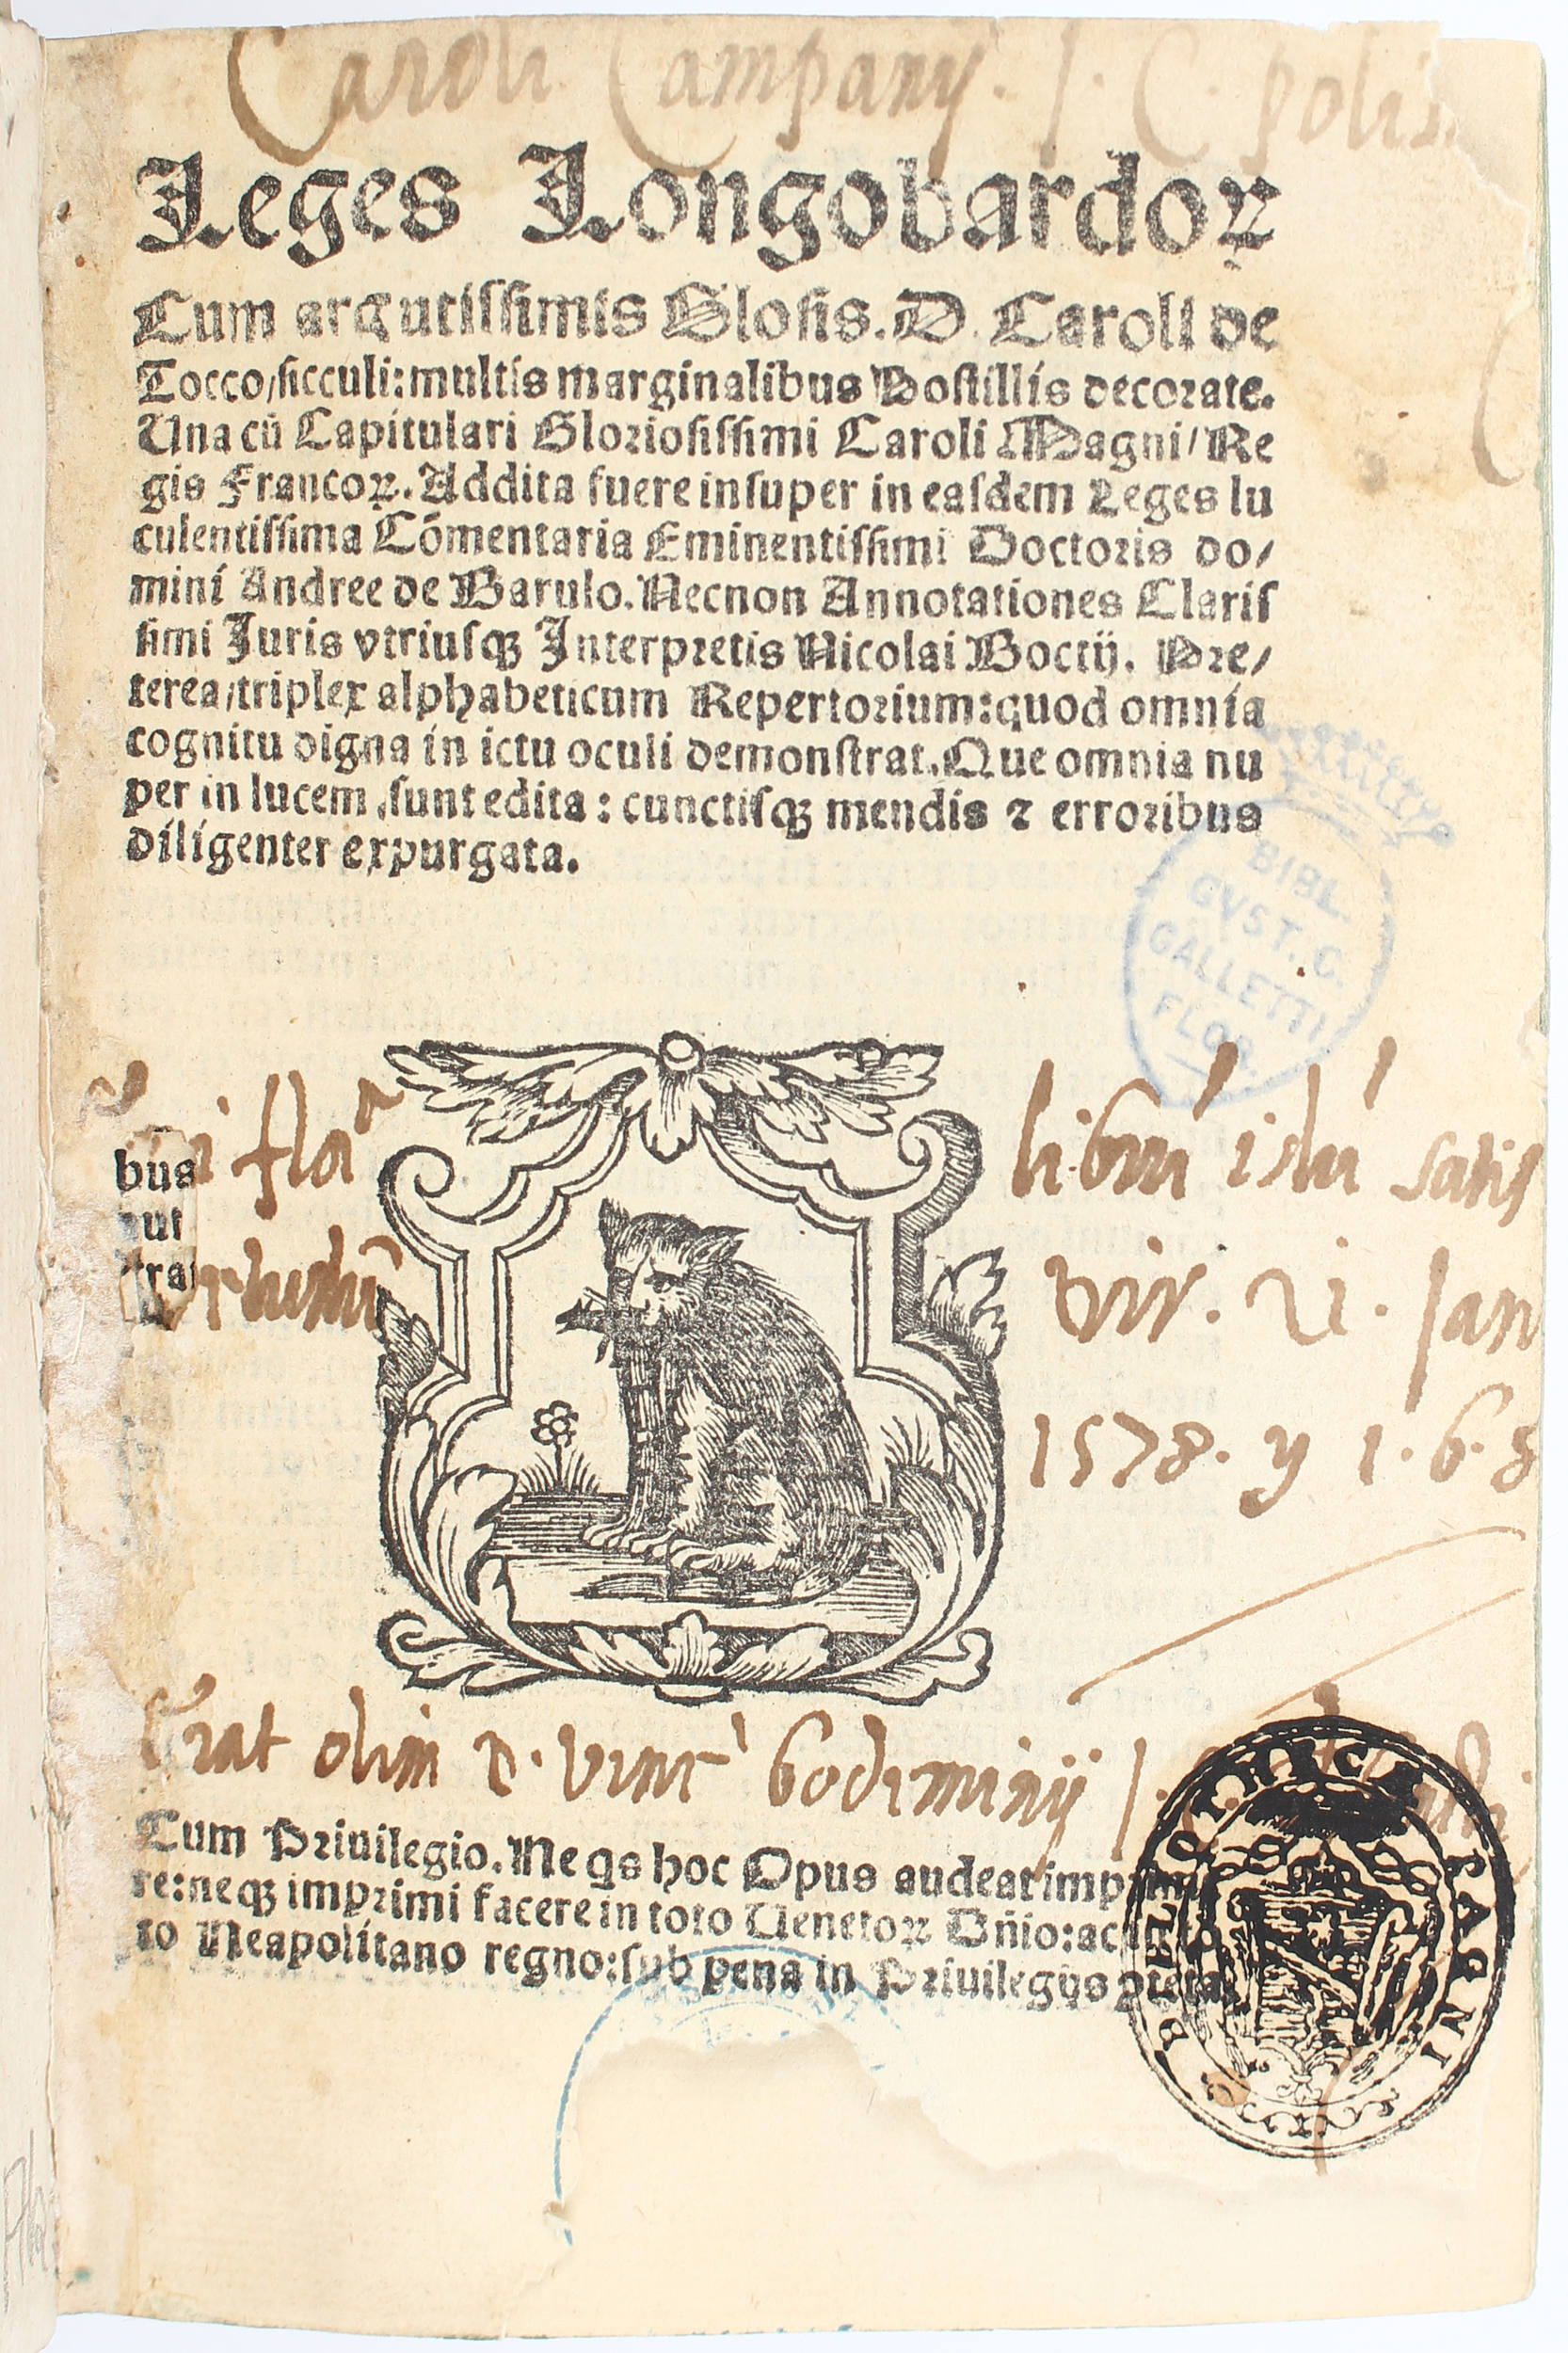 Caroli Campanij. J. C. poli
Leges Longobardoꝝ
Cum argutissimis Glosis. D. Caroli de
Tocco/sicculi: multis marginalibus Postillis decorate.
Una cũ Capitulari Gloriosissimi Caroli Magni/Re
gis Francoꝝ. Addita fuere insuper in easdem Leges lu
culentissima Cõmentaria Eminentissimi Doctoris do/
mini Andree de Barulo. Necnon Annotationes Claris
simi Juris vtriusqꝫ Interpretis Nicolai Boctij. Pre/
terea/triplex alphabeticum Repertorium: quod omnia
cognitu digna in ictu oculi demonstrat. Que omnia nu
per in lucem sunt edita: cunctisqꝫ mendis ⁊ erroribus
diligenter expurgata.
BIBL.
GVST. C.
GALLETTI
FLOR.
librũ istũ satis
bus
aut
tra
21. Jan
1578. y 1. 6. 8
Erat olim D. Vinc Bodiminij J.
Cum Priuilegio. Ne qs hoc Opus audeat imprimi
re: neqꝫ imprimi facere in toto Uenetoꝝ Dñio: ac
to Neapolitano regno: sub pena in Priuilegijs